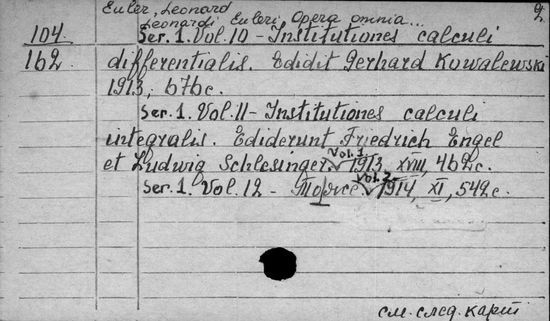 Euler, Leonard
2.
Leonardi Euleri, Opera omnia...
104 Ser. 1. Vol. 10 - Institutiones calculi
162 differentialis. Edidit Gerhard Kowalewski
1913, 676c.
Ser. 1. Vol. 11 - Institutiones calculi
integralis. Ediderunt Friedrich Engel
Vol. 1
et Ludwig Schlesinger. 1913, XVIII, 462c.
Vol. 2
Ser. 1. Vol. 12 - 1914, XI, 542c.
см. след. карт